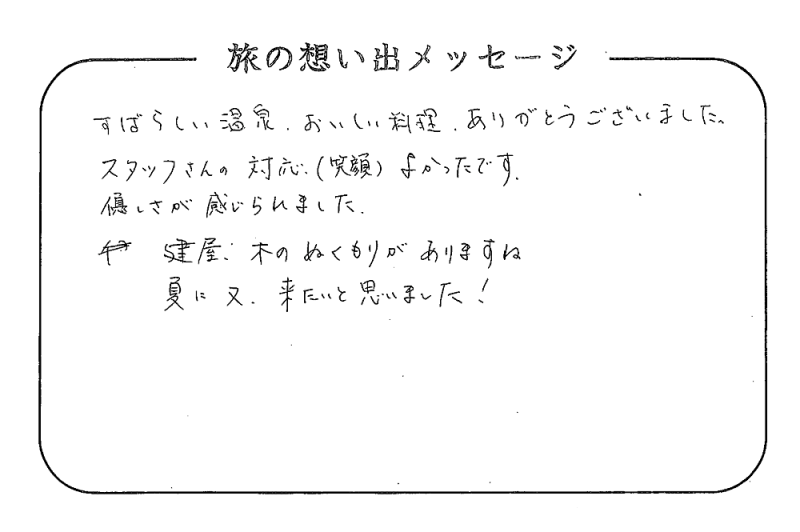 旅の想い出メッセージ
すばらしい温泉.おいしい料理.ありがとうございました。
スタッフさんの対応.(笑顔)よかったです.
優しさが感じられました.
建屋:木のぬくもりがありますね
夏に又.来たいと思いました!